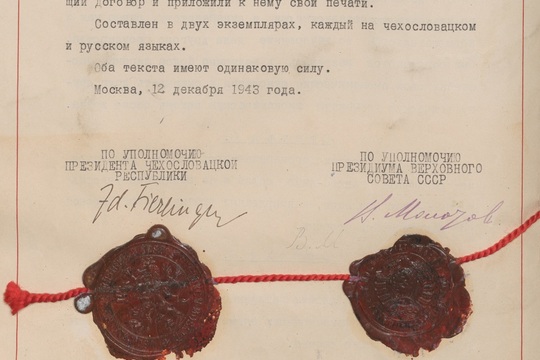 щий договор и приложили к нему свои печати.
Составлен в двух экземплярах, каждый на чехословацком
и русском языках.
Оба текста имеют одинаковую силу.
Москва, 12 декабря 1943 года.
ПО УПОЛНОМОЧИЮ
ПРЕЗИДЕНТА ЧЕХОСЛОВАЦКОЙ
РЕСПУБЛИКИ
ПО УПОЛНОМОЧИЮ
ПРЕЗИДИУМА ВЕРХОВНОГО
СОВЕТА СССР
Zd. Fierlinger
В. Молотов